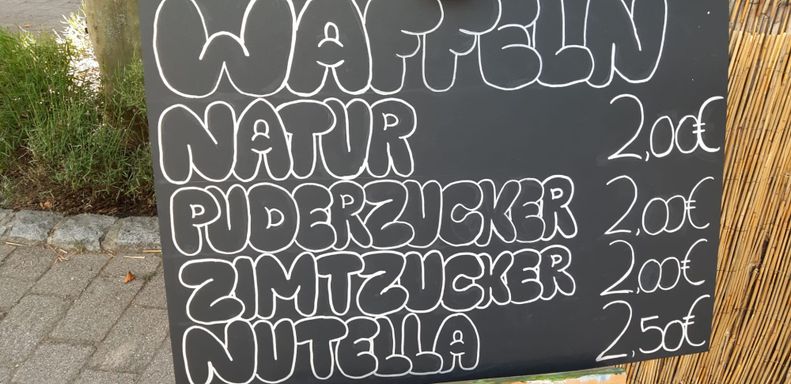 WAFFELN
NATUR 2,00€
PUDERZUCKER 2,00€
ZIMTZUCKER 2,00€
NUTELLA 2,50€